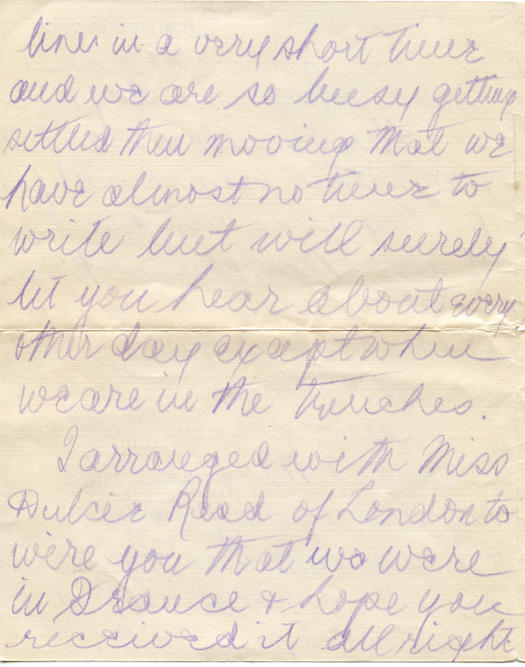 lines in a very short time
and we are so busy getting
settled then moving that we
have almost no time to
write but will surely
let you hear about every
other day except when
we are in the trenches.
I arranged with Miss
Dulcie Read of London to
wire you that we were
in France & hope you
received it all right